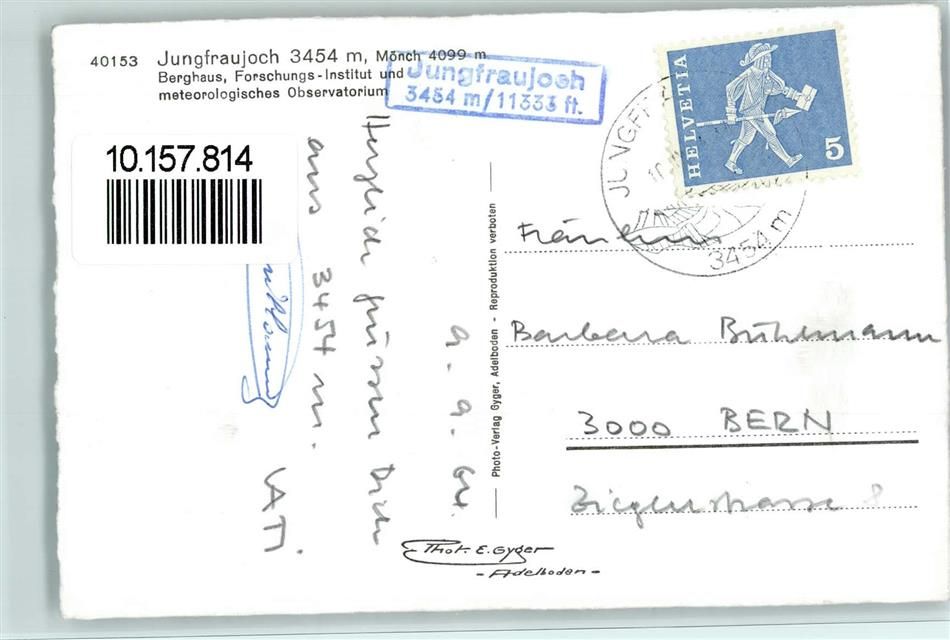 40153 Jungfraujoch 3454 m, Mönch 4099 m
Berghaus, Forschungs-Institut und
meteorologisches Observatorium
Jungfraujoch
3454 m/11333 ft.
HELVETIA
5
JUNGFR
3454 m
10.157.814
a. a. Gr.
Herzliche grüsse Dich
aus 3454 m.
VATI.
Photo-Verlag Gyger, Adelboden - Reproduktion verboten
Fräulein
Barbara Bühlmann
3000 BERN
Zieglerstrasse 8
Phot. E. Gyger
- Adelboden -